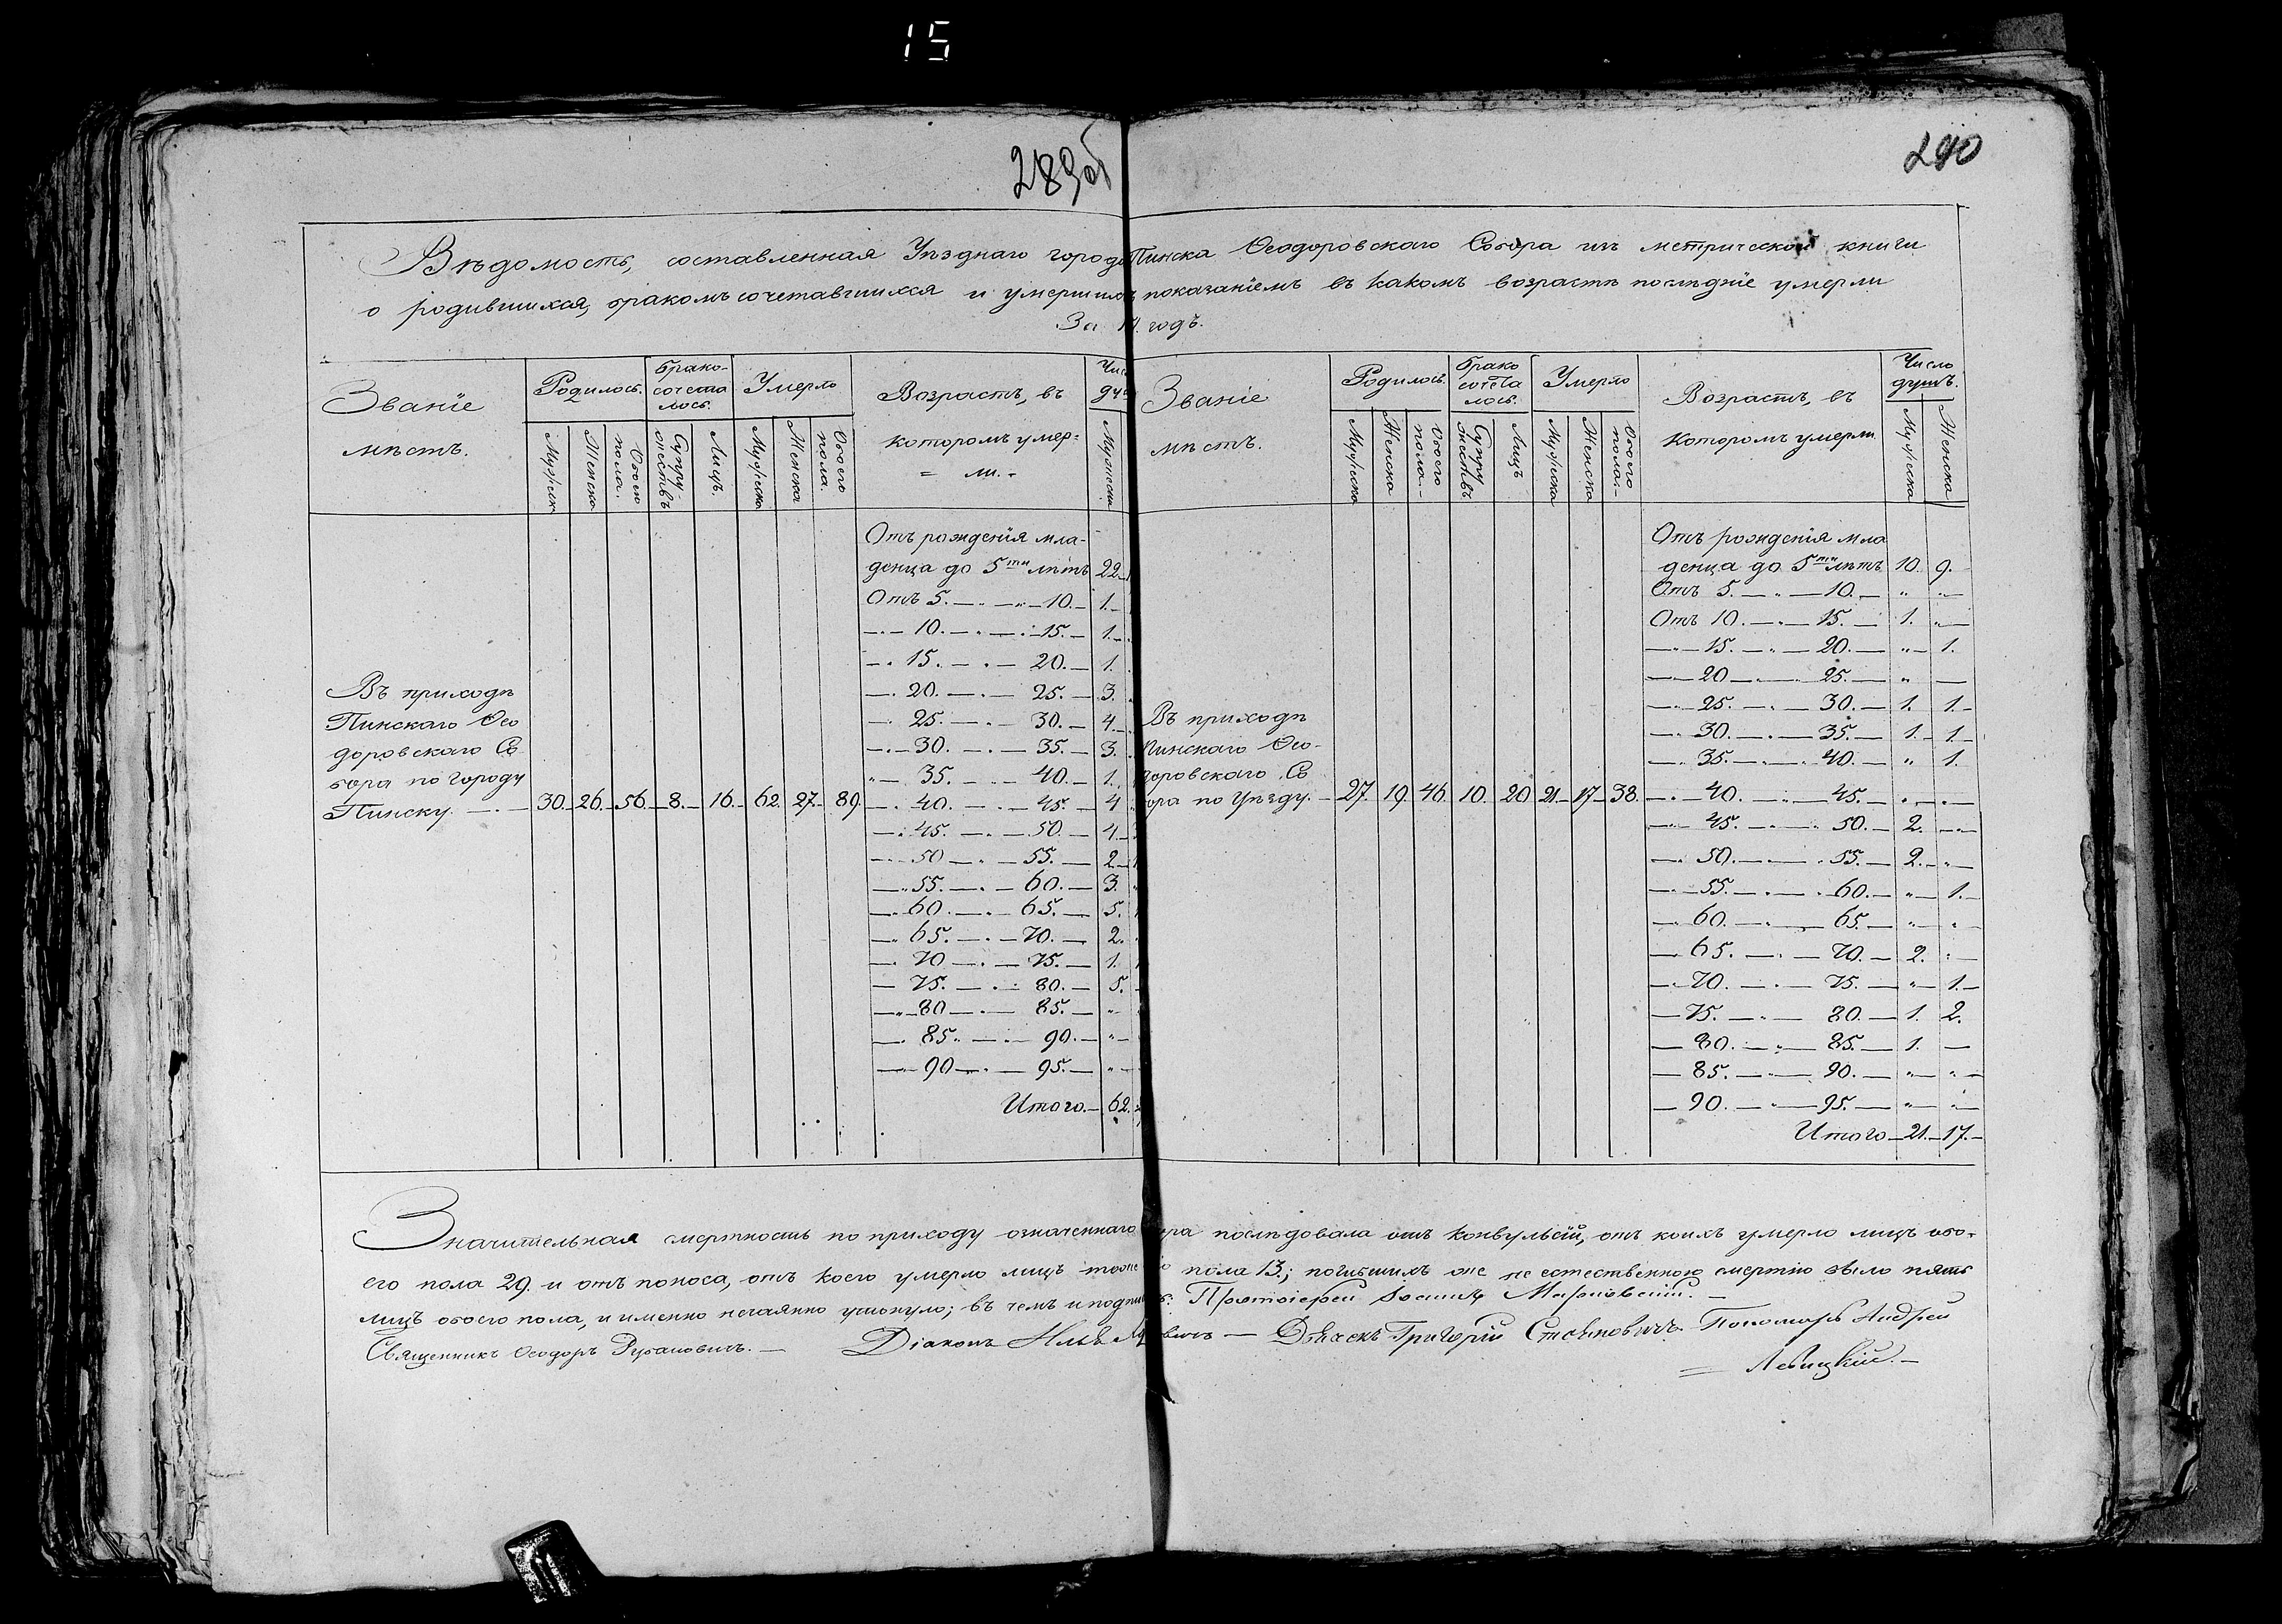 15
289об
290
Вѣдомость, составленная Уѣзднаго города Пинска Ѳеодоровскаго Собора изъ метрической книги
о родившихся, бракомъ сочетавшихся и умершихъ показаніемъ въ какомъ возрастѣ послѣдніе умерли
За годъ.
Званіе мѣстъ.
Родилось.
Мужеск
Женска
Обоего пола.
Брако-
сочета
лось.
Супру
жествъ
Лицъ.
Умерло
Мужеска
Женска
Обоего пола.
Возрастъ, въ
которомъ умер=
= ли. -
Чис
душ
Мужеска
Въ приходѣ
Пинскаго Ѳео
доровскаго Со
бора по городу
Пинску. — 30. 26. 56. 8. 16. 62. 27. 89.
Отъ рожденія мла-
денца до 5ти лѣтъ 22
Отъ 5. — „ — 10. — 1.
— „ — 10. — „ — 15. — 1.
— „ 15. — „ — 20. — 1.
— „ 20. — „ — 25. — 3.
— „ 25. — „ — 30. — 4.
— „ — 30. — „ — 35. — 3.
„ — 35. — „ — 40. — 1.
— „ 40. — „ — 45. — 4
— „ 45. — „ — 50. — 4.
— „ 50 — „ — 55. — 2
— „ 55. — „ — 60. — 3.
— „ 60. — „ — 65. — 5.
— „ 65. — „ — 70. — 2.
— „ 70 — „ — 75. — 1.
— 75. — „ — 80. — 5.
— „ — 80 — „ — 85. — „
— „ 85. — „ — 90. — „ —
— „ — 90 — „ — 95. — „ —
Итого. — 62.
Званіе
мѣстъ.
Родилось.
Мужеска
Женска
Обоего пола. -
Брако
сочета
лось.
Супру
жествъ
Лицъ
Умерло
Мужеска
Женска
Обоего пола. -
Возрастъ, въ
которомъ умерли
Число
душъ.
Мужеска
Женска
Въ приходѣ
Пинскаго Ѳео-
доровскаго Со
бора по Уѣзду. — 27. 19. 46. 10. 20 21 — 17 — 38.
Отъ рожденія мла
денца до 5ти лѣтъ 10. 9.
Отъ 5. — „ — 10. — „ „ —
Отъ 10. — „ — 15. — 1. „ —
— „ — 15. — „ — 20. — „ — 1.
— „ — 20 — „ — 25. — „ —
— „ — 25. — „ — 30. — 1. 1. —
— „ 30. — „ — 35. — 1. — 1. —
— „ 35. — „ — 40. — „ 1.
— „ — 40. — „ — 45. — „ — „ —
— „ — 45. — „ — 50. — 2. — „ —
— „ 50. — „ — 55. — 2. — „ —
— „ — 55. — „ — 60. — „ — 1. —
— „ 60. — „ — 65. — „ — „
— 65. — „ — 70. — 2. „ —
— „ 70. — „ — 75. — „ — 1. —
— 75. — „ — 80. — 1. 2.
— 80. — „ — 85. — 1. —
— 85. — „ — 90. — „ — „ —
— 90. — „ — 95. — „ — „ —
Итого — 21. — 17. —
Значительная смертность по приходу означеннаго бора послѣдовала отъ конвульсій, отъ коихъ умерло лицъ обо-
его пола 29. и отъ поноса, отъ коего умерло лицъ тоже о пола 13.; погибшихъ же не естественною смертію было пять
лицъ обоего пола, и именно нечаянно утонуло; въ чемъ и подпи Протоіерей Іоаннъ
Священникъ Ѳеодоръ Рубановичъ. — Діаконъ Илья вичъ — Дьячекъ Григорій Стояновичъ. Пономарь Андрей
= Левицкій. —